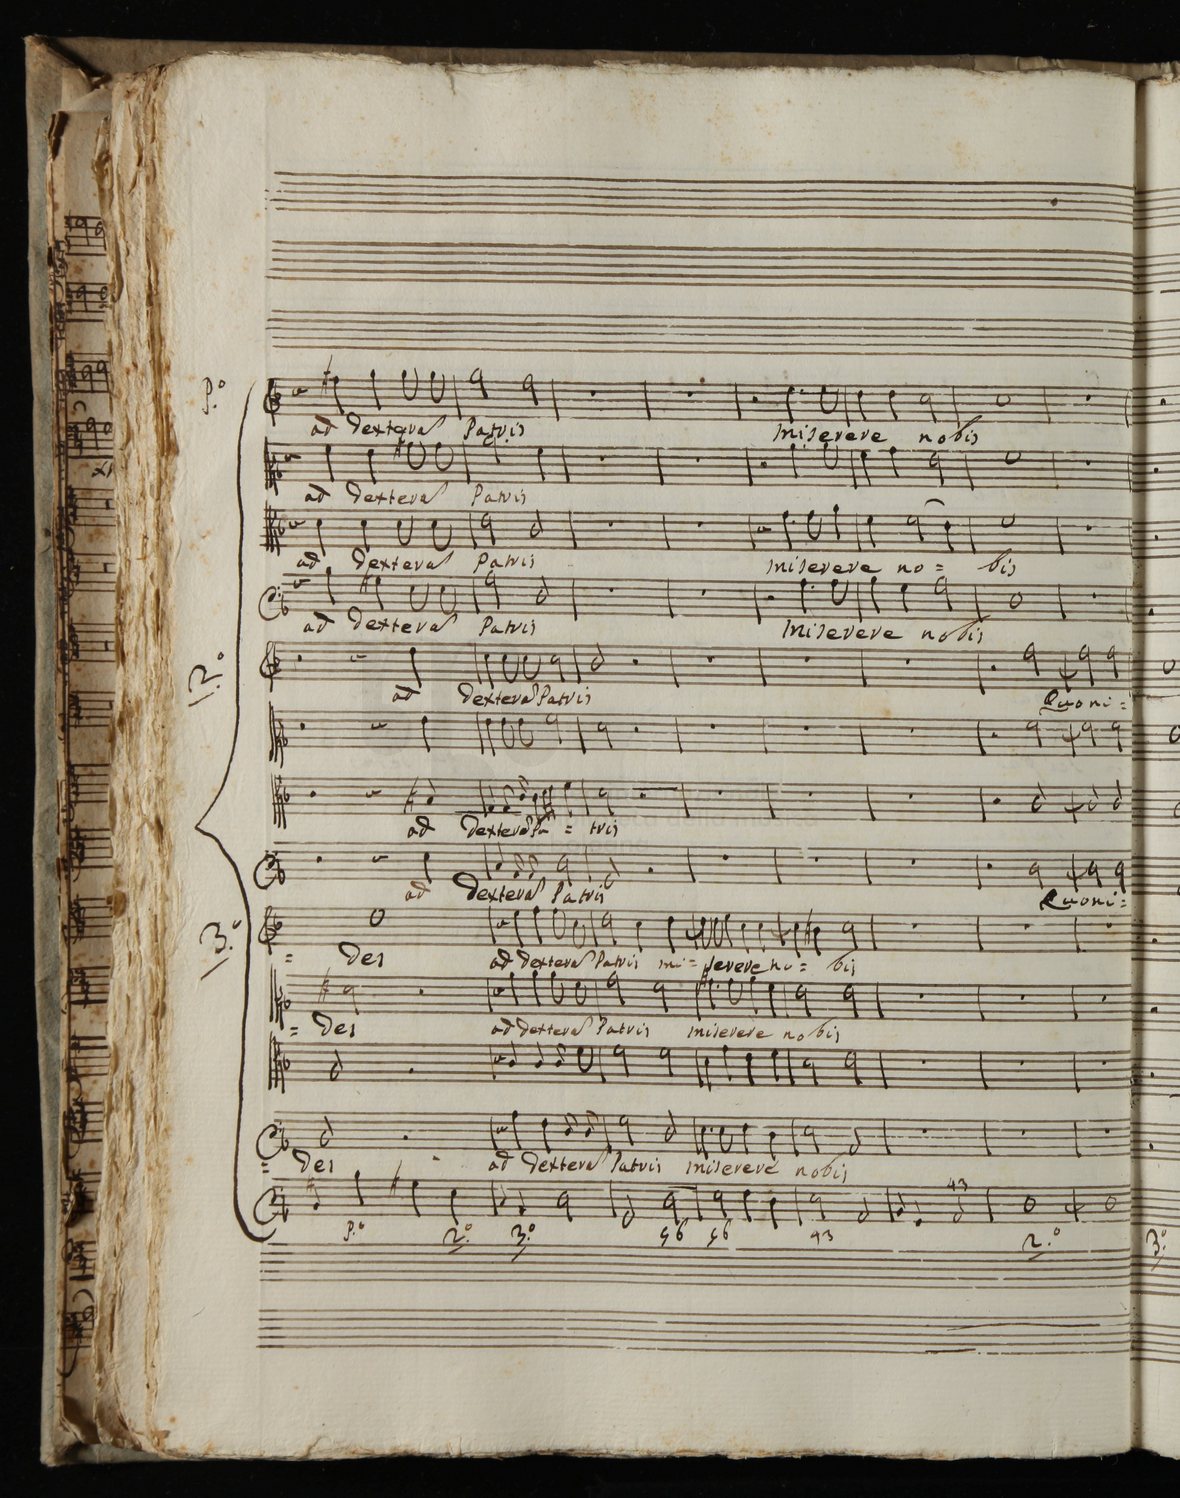 P.º
ad dextera Patris miserere nobis
ad dextera Patris
ad dextera Patris miserere no = bis
ad dextera Patris miserere nobis
2.º
ad dextera Patris Quoni =
ad dextera Pa = tris
ad dextera Patris Quoni =
3.º
= des ad dextera Patris mi = serere no = bis
= des ad dextera Patris miserere nobis
= des ad dextera Patris miserere nobis
43
P.º 2.º 3.º 56 56 43 2.º 3.º